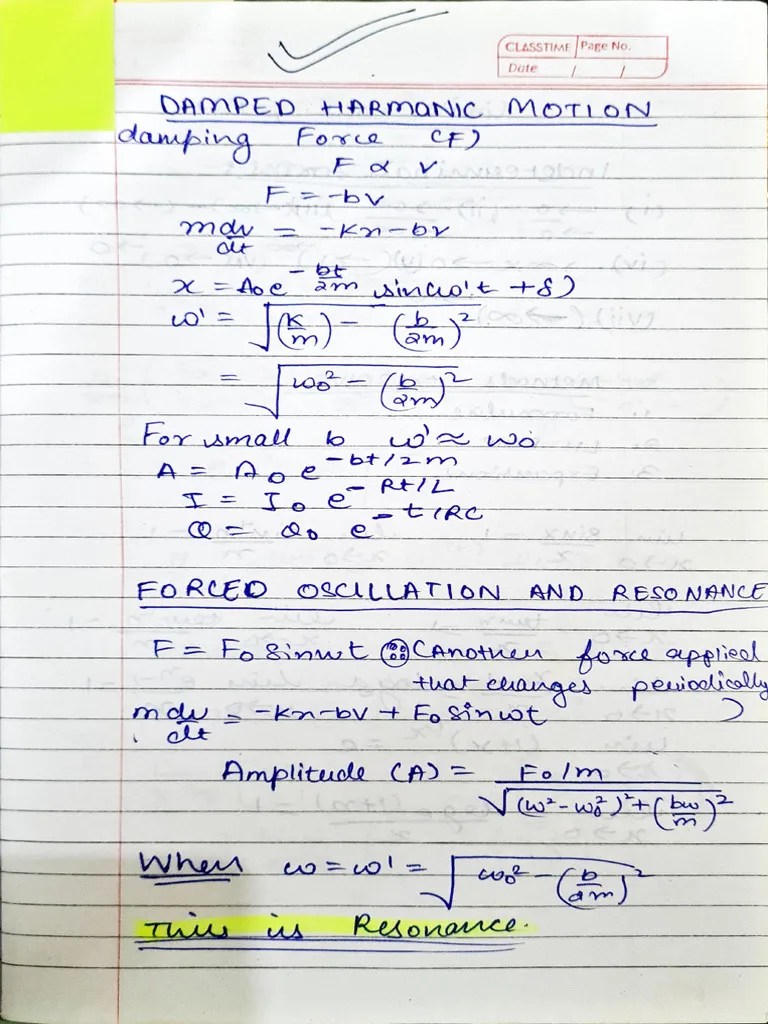 CLASSTIME Page No.
Date / /
DAMPED HARMONIC MOTION
damping Force (F)
F ∝ v
F = -bv
mdv/dt = -Kx-bv
x = A₀e^(-bt/2m) sin(ω't + δ)
ω' = √((K/m) - (b/2m)²)
= √(ω₀² - (b/2m)²)
For small b ω' ≈ ω₀
A = A₀ e^(-bt/2m)
I = I₀ e^(-Rt/L)
Q = Q₀ e^(-t/RC)
FORCED OSCILLATION AND RESONANCE
F = F₀ sinωt (Another force applied
that changes periodically
mdv/dt = -Kx-bv + F₀ sinωt )
Amplitude (A) = F₀/m / √((ω²-ω₀²)² + (bω/m)²)
When ω = ω' = √(ω₀² - (b/2m)²)
This is Resonance.